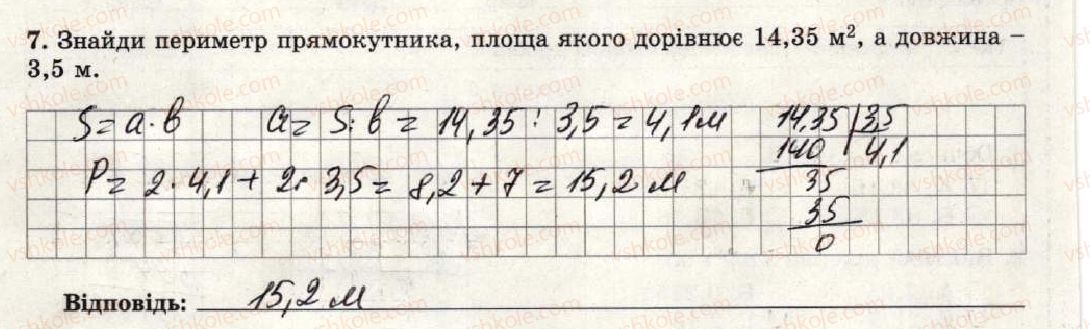 7. Знайди периметр прямокутника, площа якого дорівнює 14,35 м², а довжина –
3,5 м.
S = a · b a = S : b = 14,35 : 3,5 = 4,1 м
14,35 | 3,5
140 | 4,1
35
35
0
P = 2 · 4,1 + 2 · 3,5 = 8,2 + 7 = 15,2 м
Відповідь: 15,2 м